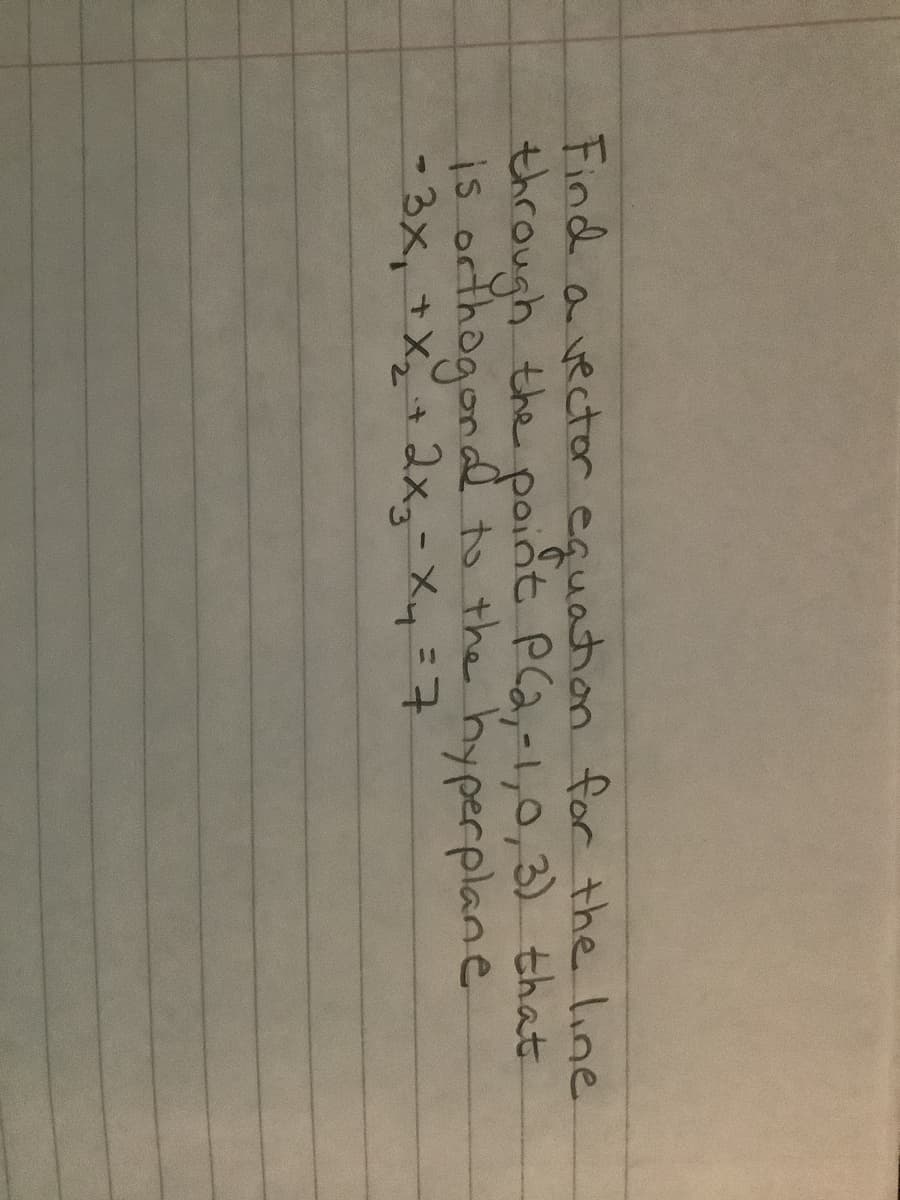 Find a vector equation for the line
through the point P(2,-1,0,3) that
is orthogonal to the hyperplane
-3x₁ + x₂ + 2x₃ - x₄ = 7